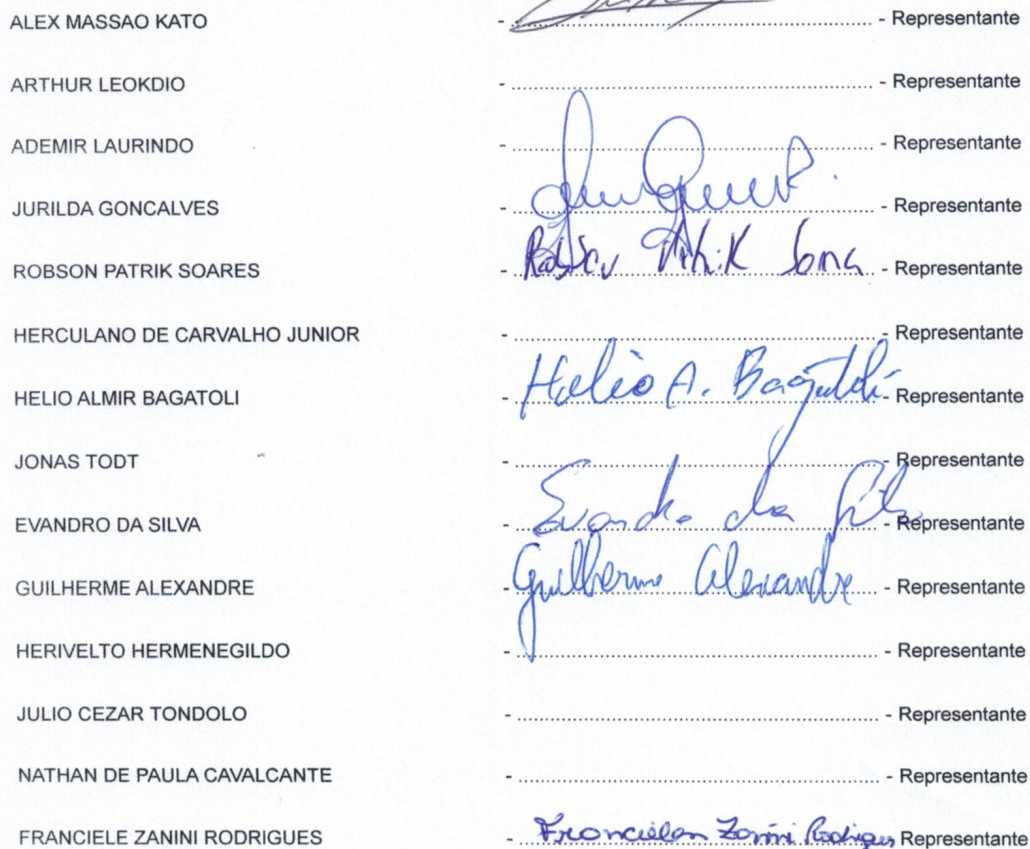 ALEX MASSAO KATO - ........ - Representante
ARTHUR LEOKDIO - ........ - Representante
ADEMIR LAURINDO - ........ - Representante
JURILDA GONCALVES - ........ - Representante
ROBSON PATRIK SOARES - Robson Patrik - Representante
HERCULANO DE CARVALHO JUNIOR - ........ - Representante
HELIO ALMIR BAGATOLI - Helio A. Bagatoli - Representante
JONAS TODT - ........ - Representante
EVANDRO DA SILVA - Evandro da Silva - Representante
GUILHERME ALEXANDRE - Guilherme Alexandre - Representante
HERIVELTO HERMENEGILDO - ........ - Representante
JULIO CEZAR TONDOLO - ........ - Representante
NATHAN DE PAULA CAVALCANTE - ........ - Representante
FRANCIELE ZANINI RODRIGUES - Zanini Rodrigues Representante